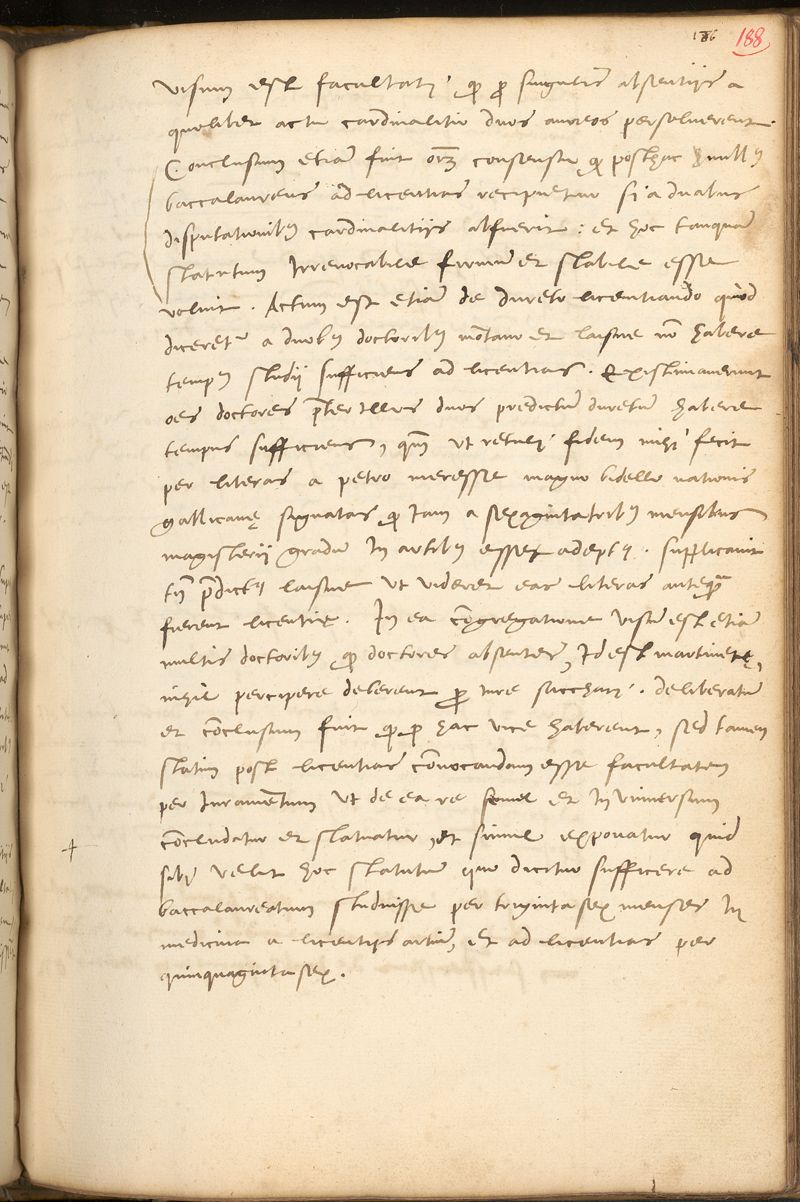 186 188
visum est facultati, qͦ p singulis absentijs a
quolibet actu cardinalitio duos aureos persolverent.
Conclusum etiã fuit oĩm consensu qͦ posthac nullꝰ
baccalaureus ad licentias recipietur si a duabus
disputationibꝰ cardinalitijs abfuerit: et hoc tanquã
statutum irrevocabile firmũ et stabile esse
voluit. Actum est etiã de dureto licentiando quod
diceretʳ a duobꝰ doctoribꝰ et nõ habere
tempꝰ studij sufficiens ad licentias. Existimaverunt
oẽs doctores p̃ter illos duos predictũ duretũ habere
tempus sufficiens, qm̃ ut retuli fidem mihi fecit
per literas a petro meresse magno bidello nationis
gallicanę signatas qͦ iam a sexagintatribꝰ mensibus
magisterij gradũ in artibꝰ esset adeptꝰ. supplicavit
tñ p̃dictꝰ ut videret eas literas anteq̃
fierent licentię. In ea cõgregatione visũ est etiã
multis doctoribꝰ qͦ doctores absentes, id est martinetę,
nihil percipere deberent p iure sacchari. deliberatũ
et cõclusum fuit qͦ p hac vice haberent, sed tamen
statim post licentias cõvocandam esse facultatem
per iuramentum ut de ea re semel et in universum
cõcludatur et statuatur, et simul exponatur quid
sibi velit hoc statutũ quo dicitur sufficere ad
baccalaureatum studuisse per triginta sex menses in
medicina a licentijs artiũ, et ad licentias per
quinquaginta sex.